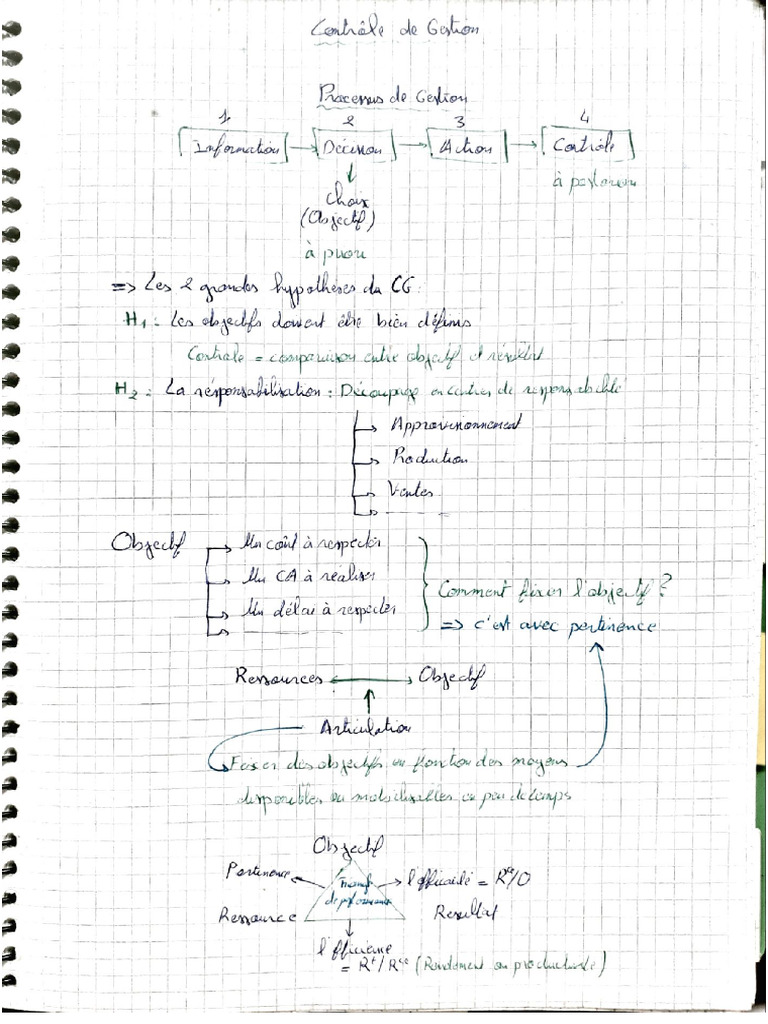 Contrôle de Gestion
Processus de Gestion
1 2 3 4
Information → Décision → Action → Contrôle
à posteriori
choix
(Objectif)
à priori
=> Les 2 grandes hypothèses du CG:
H1 : Les objectifs doivent être bien définis
Contrôle = comparaison entre objectif et résultat
H2 : La résponsabilisation : Découpage en centres de responsabilité
Approvisionnement
Production
Ventes
Objectif
Un coût à respecter
Un CA à réaliser
Un délai à respecter
Comment fixer l'objectif ?
=> c'est avec pertinence
Ressources ↔ Objectif
Articulation
Fixer des objectifs en fonction des moyens
disponibles ou mobilisables en peu de temps
Objectif
Pertinence
Triangle de performance
l'efficacité = Rt/O
Ressource
Résultat
l'efficience
= Rt/Rce (Rendement ou productivité)